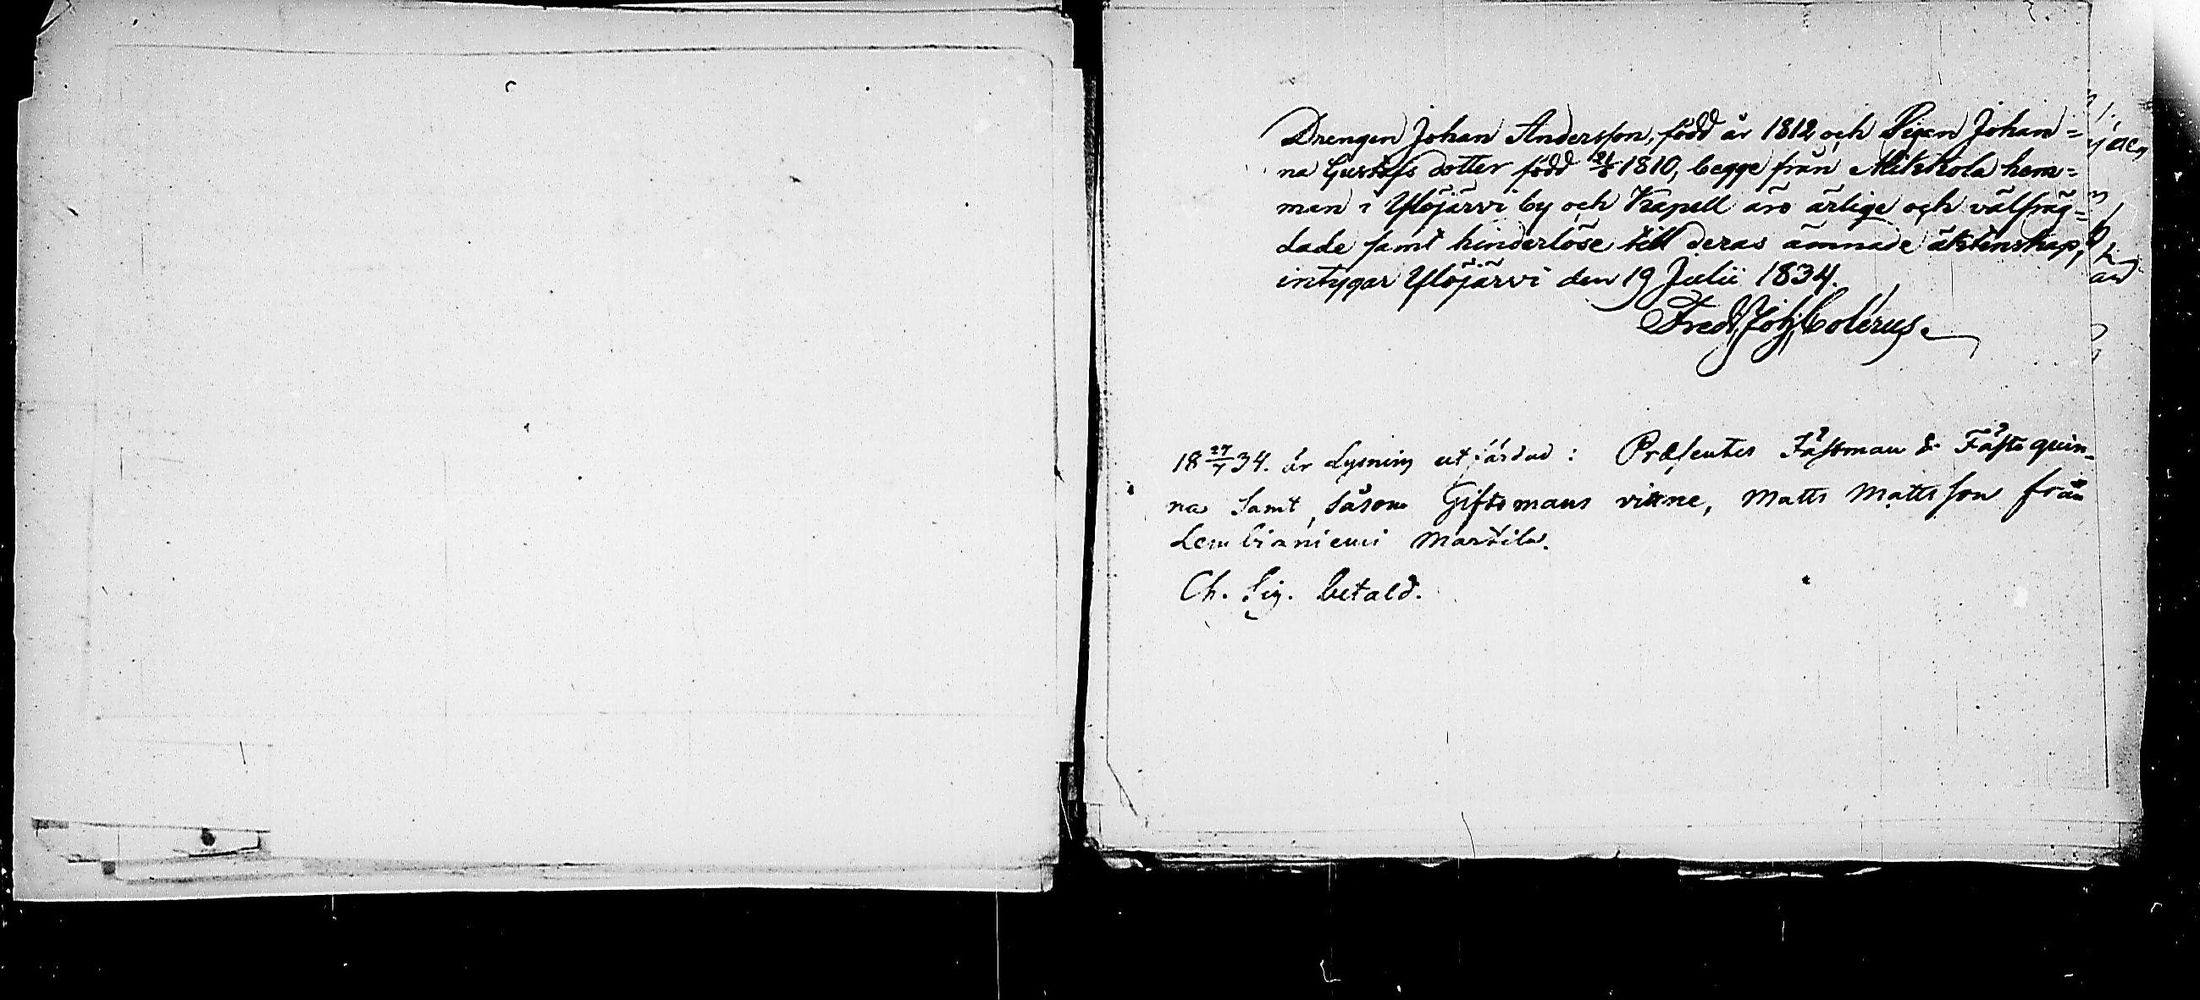 Drengen Johan Andersson, född år 1812, och Pigan Johan=
na Gustafs dotter född 1810, begge från Mikkola hem=
man i Ylöjärvi by och Kapell äro ärlige och välfräg=
dade samt hinderlöse till deras ämnade äktenskap,
intygar Ylöjärvi den 19 Julii 1834.
Fredr. Joh. Colérus.
18 27/7 34. är Lysning utfärdad: Præsentes Fästman & Fästequin-
na samt, såsom Giftomans vittne, Matts Mattsson från
Lembianiemi Marttila.
Ch. Sig. betald.